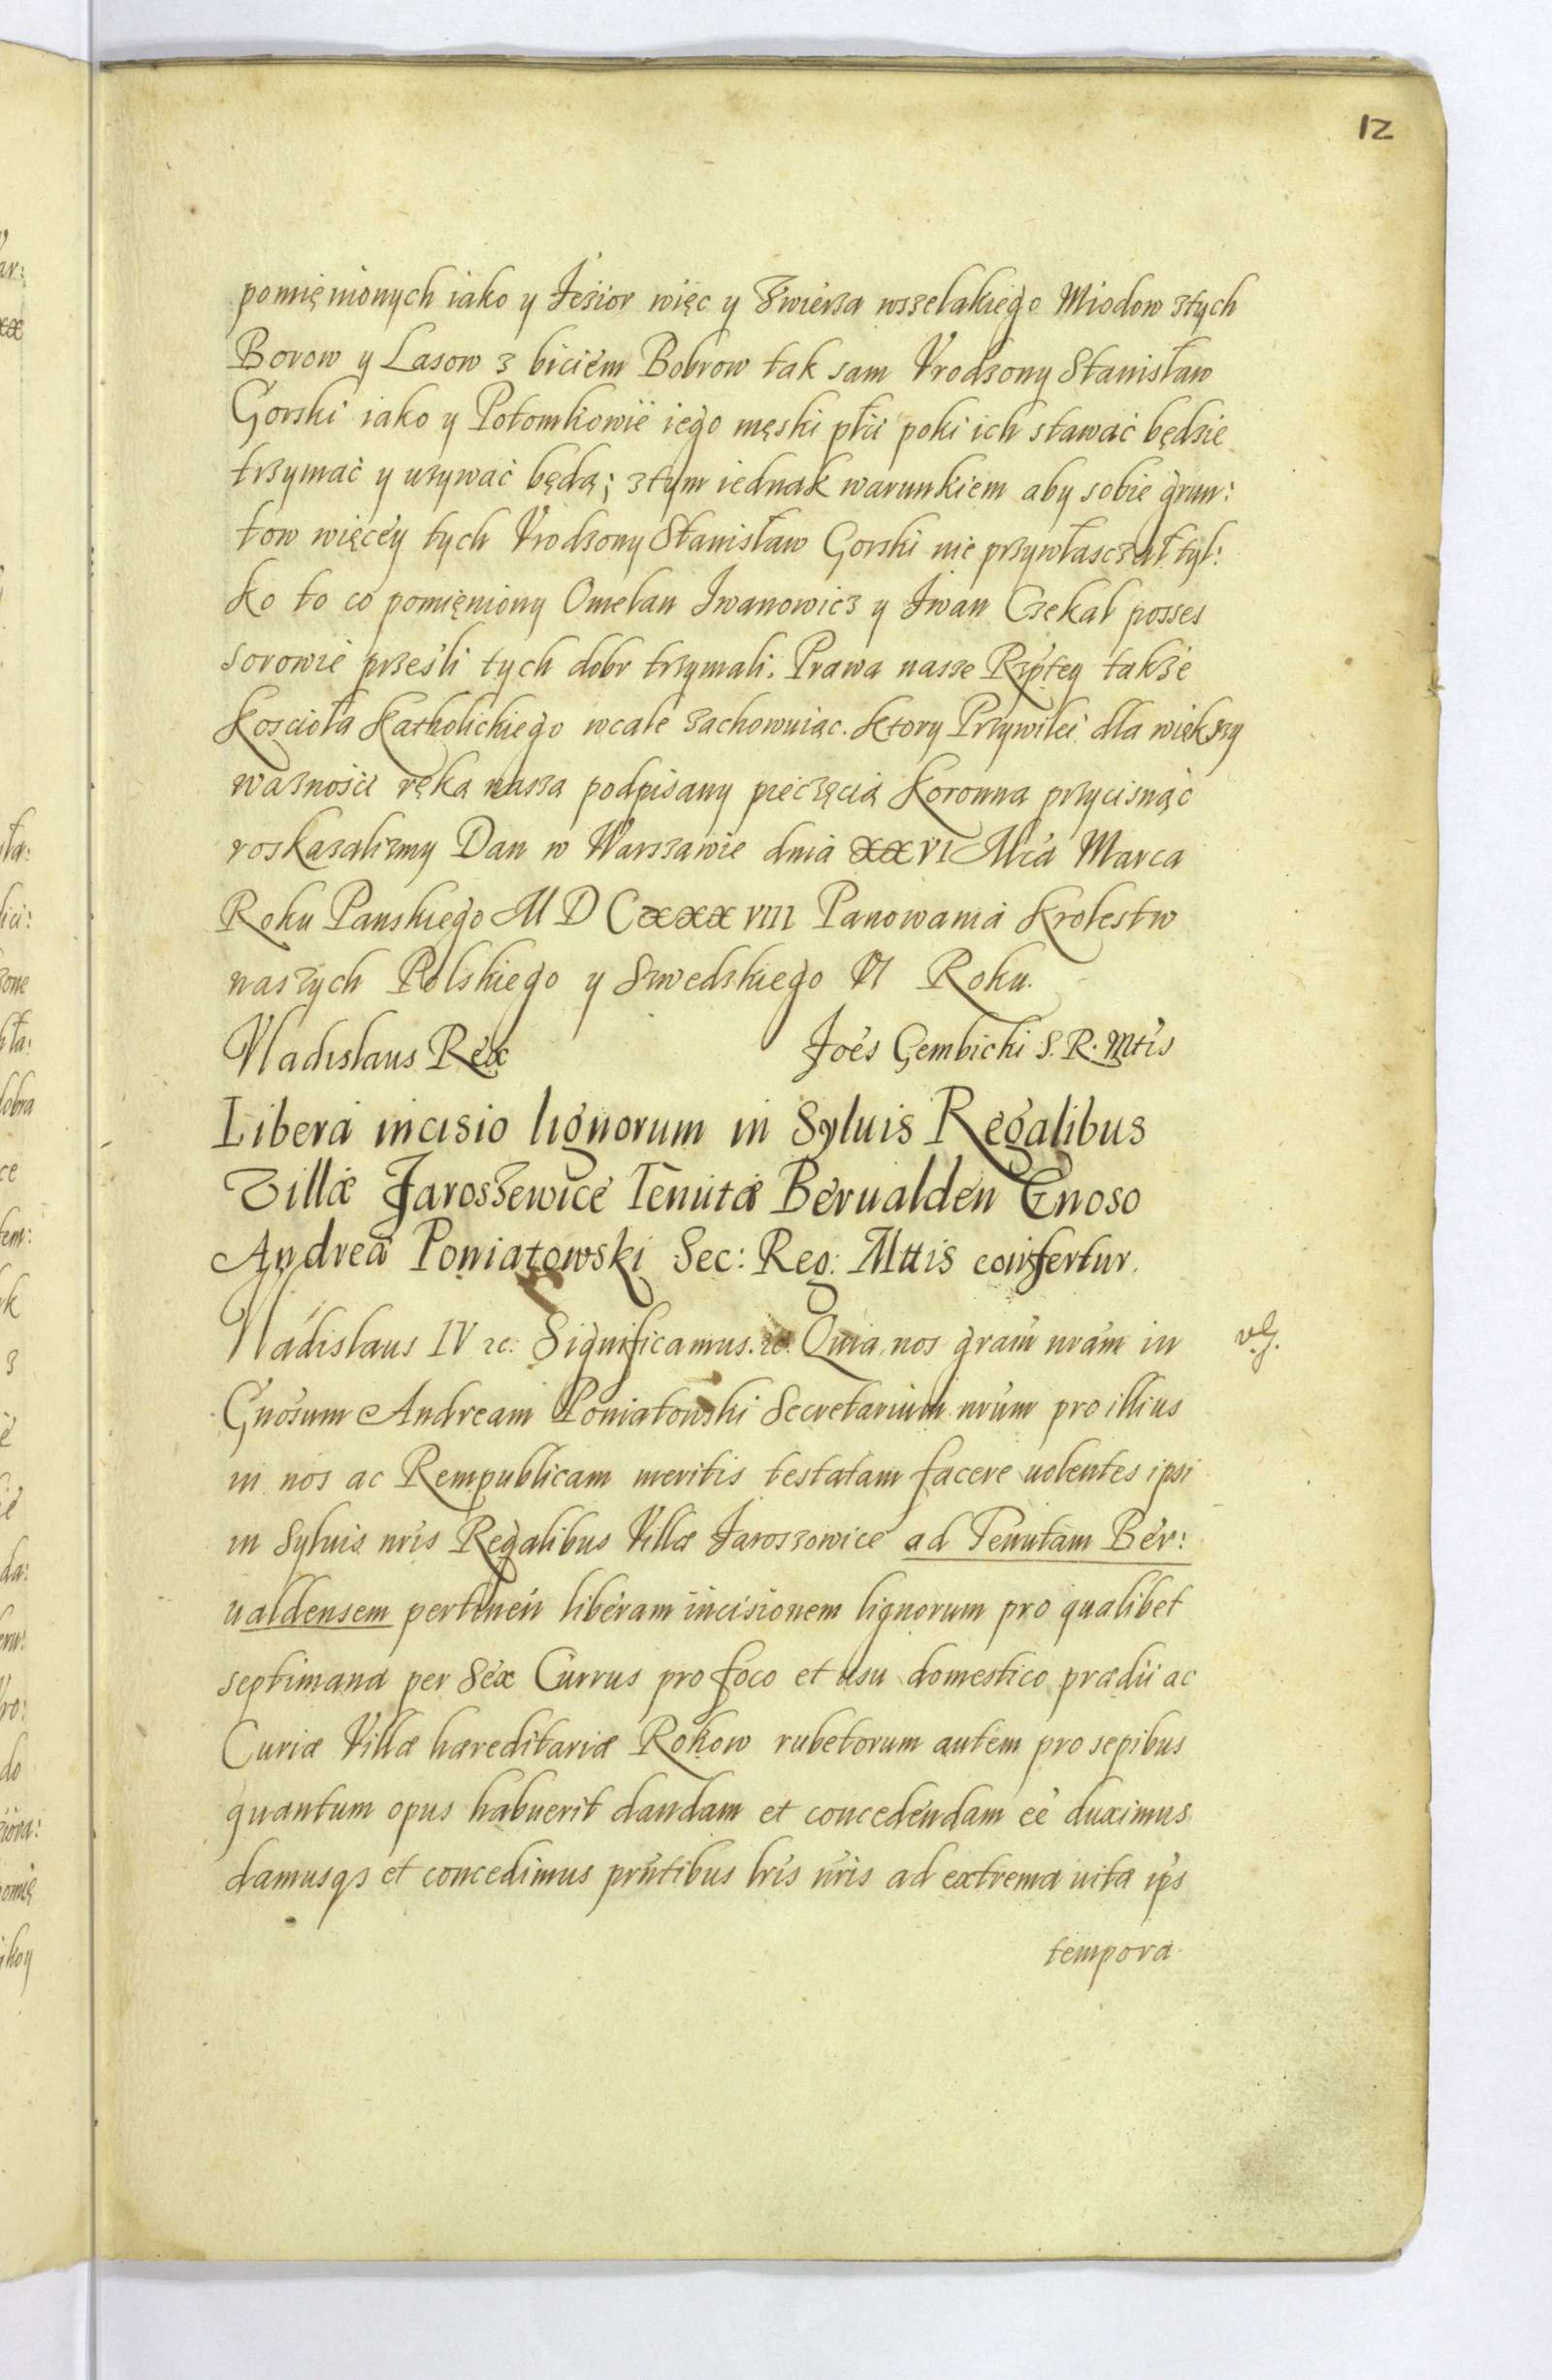 12
pomięnionych iako y Jezior więc y Zwierza wszelakiego Miodow ztych
Borow y Lasow z biciem Bobrow tak sam Vrodzony Stanisław
Gorski iako y Potomkowie iego męski płci poki ich stawać będzie
trzymać y uzywać będą; ztym iednak warunkiem aby sobie grun:
tow więcey tych Vrodzony Stanisław Gorski nie przywłasczał tyl:
ko to co pomięniony Omelan Iwanowicz y Iwan Czekal posses
sorowie przeszli tych dobr trzymali. Prawa nasze Rzptey takze
Kościoła Katholickiego wcale zachowuiąc. Ktory Przywilei dla większy
waznosci ręką naszą podpisany pieczęcią Koronna przycisnąć
roskazalizmy Dan w Warszawie dnia XXVI Mca Marca
Roku Panskiego MDCXXXVIII Panowania Krolestw
naszych Polskiego y Szwedskiego VI Roku.
Vladislaus Rex Joes Gembicki S. R. Mtis
Libera incisio lignorum in Syluis Regalibus
Villæ Jaroszewice Tenutæ Berualden Gnoso
Andreæ Poniatowski Sec: Reg: Mttis confertur.
Vladislaus IV zc: Significamus. zc. Quia nos gram nram in
Gnosum Andream Poniatowski Secretarium nrum pro illius
in nos ac Rempublicam meritis testatam facere uolentes ipsi
in Syluis nris Regalibus Villæ Jaroszowice ad Tenutam Ber:
ualdensem pertinen liberam incisionem lignorum pro qualibet
septimana per Sex Currus pro foco et usu domestico prædii ac
Curiæ Villæ hæreditariæ Rokow rubetorum autem pro sepibus
quantum opus habuerit dandam et concedendam ee duximus
damusqs et concedimus pnrtibus lris nris ad extrema uitæ ips
tempora.